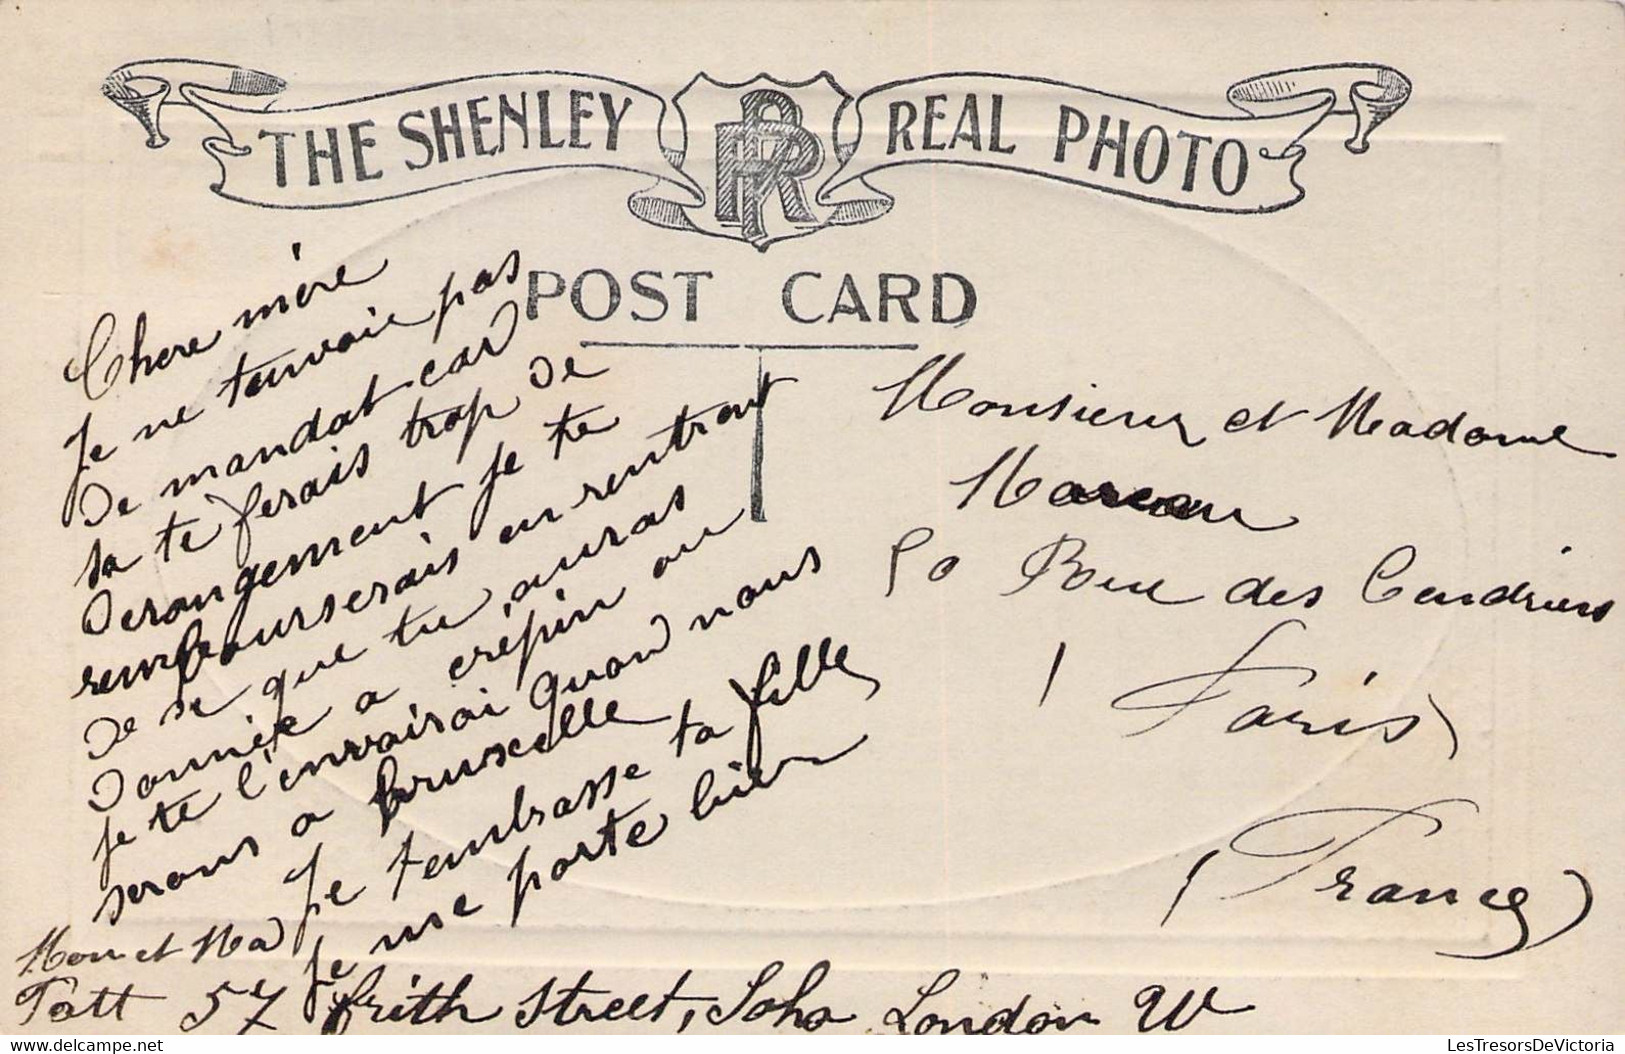 THE SHENLEY REAL PHOTO
RP
POST CARD
Chere mère
Je ne tenvoie pas
De mandat car
sa te ferais trop de
Derangement je te
rembourserais en rentrant
De se que tu auras
Donnée a crépin ou
je te l'envairai Quand nous
serons a bruxelle
Je tembrasse ta fille
Je me porte bien
Mon et Mad
Tatt 57 frith Street, Soho London W
Monsieur et Madame
Moreau
50 Rue des Cendriers
Paris
(France)
LesTresorsDeVictoria
delcampe.net